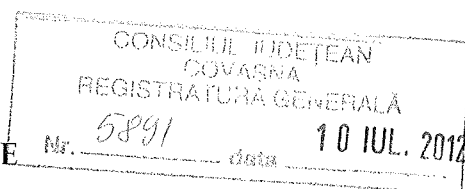 CONSILIUL JUDEŢEAN
COVASNA
REGISTRATURĂ GENERALĂ
E Nr. 5891 data 10 IUL. 2012